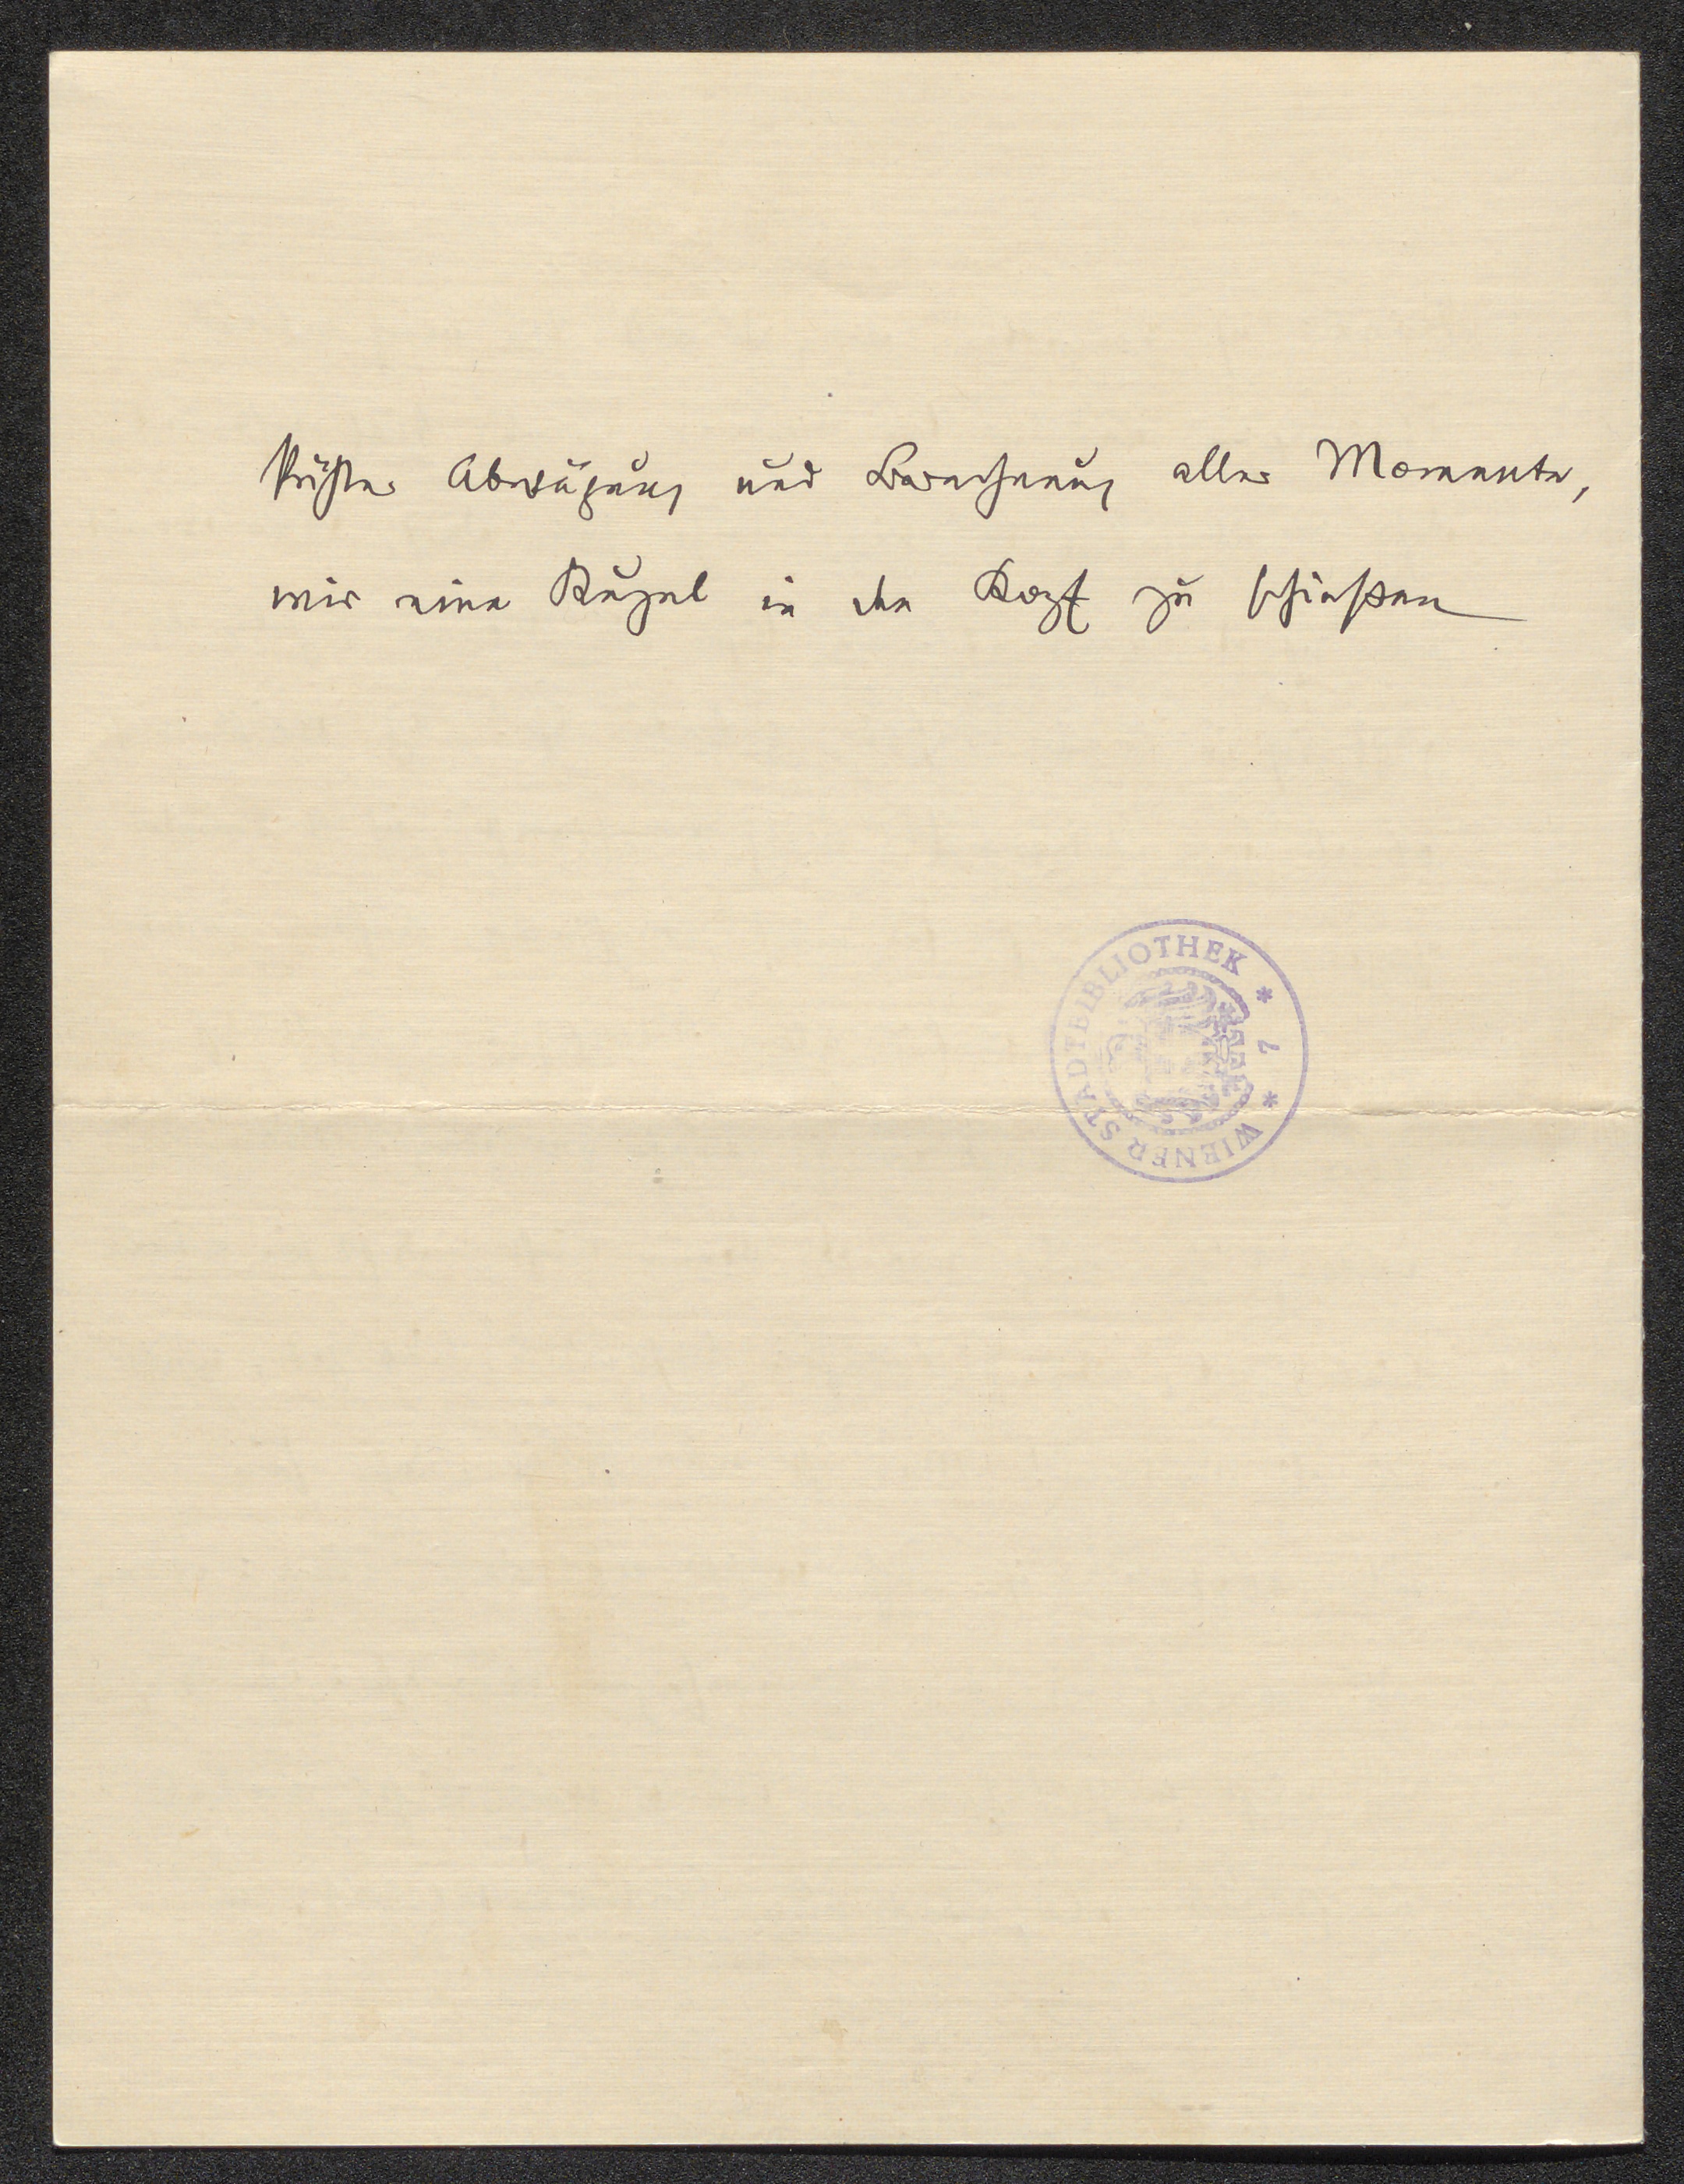 kühler Abwägung und Berechnung aller Momente,
mir eine Kugel in den Kopf zu schießen
WIENER STADTBIBLIOTHEK * 7 *